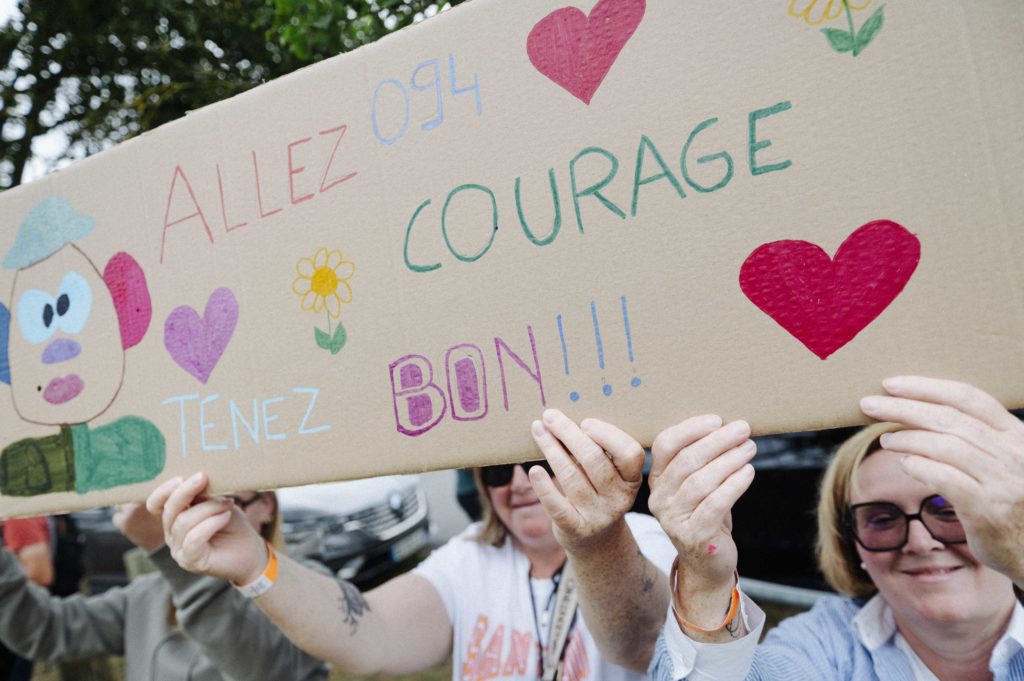 ALLEZ 094
COURAGE
TENEZ BON!!!